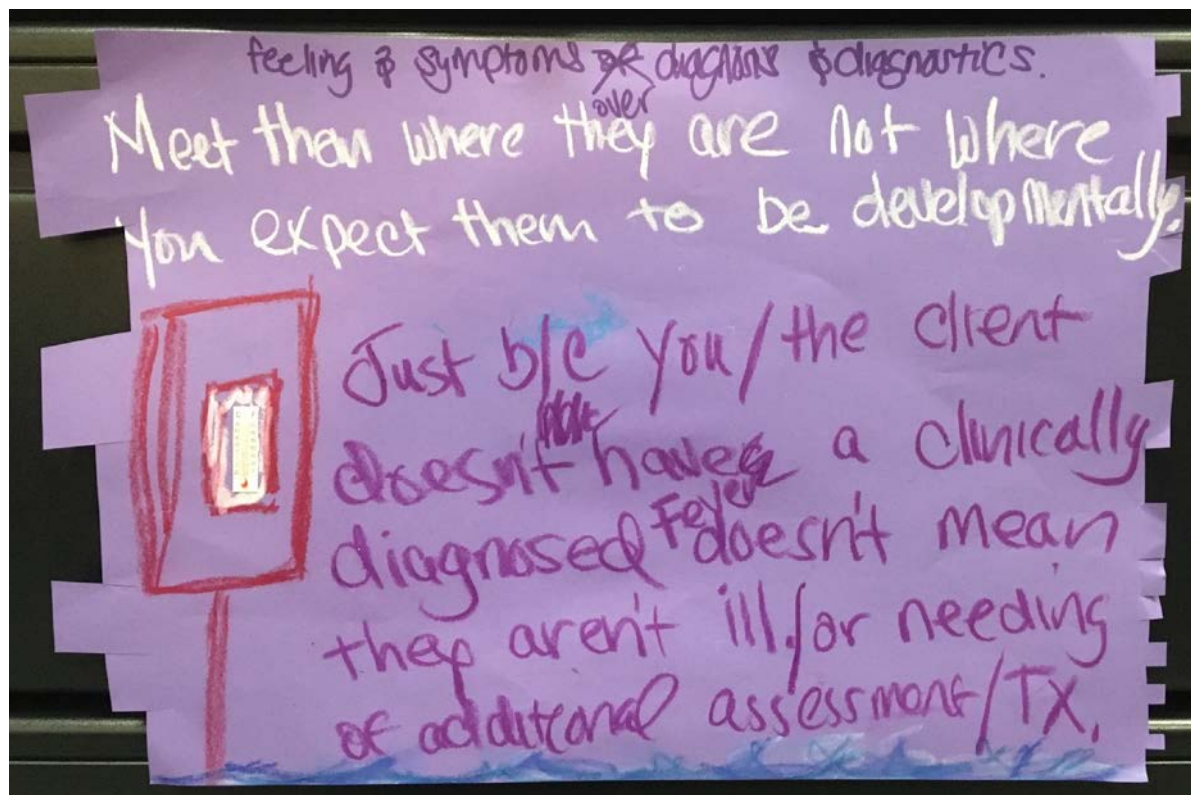 feeling & symptoms over diagnosis & diagnostics.
Meet them where they are not where
you expect them to be developmentally.
Just b/c you/the client
doesn't have a clinically
diagnosed Fever doesn't mean
they aren't ill./or needing
of additional assessment/TX.